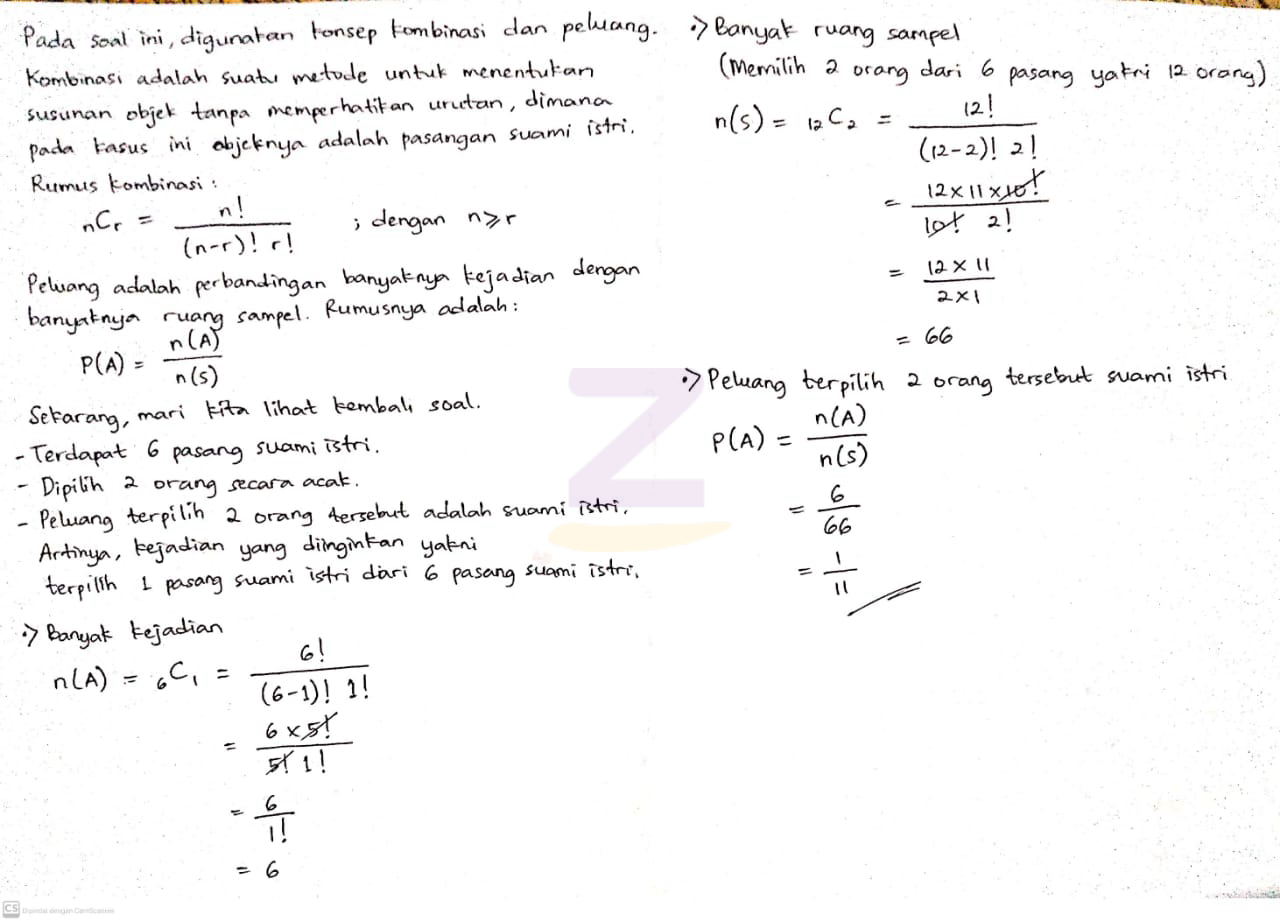 Pada soal ini, digunakan konsep kombinasi dan peluang.
Kombinasi adalah suatu metode untuk menentukan
susunan objek tanpa memperhatikan urutan, dimana
pada kasus ini objeknya adalah pasangan suami istri.
Rumus kombinasi :
nCr = n! / (n-r)! r! ; dengan n≥r
Peluang adalah perbandingan banyaknya kejadian dengan
banyaknya ruang sampel. Rumusnya adalah :
P(A) = n(A) / n(s)
Sekarang, mari kita lihat kembali soal.
- Terdapat 6 pasang suami istri.
- Dipilih 2 orang secara acak.
- Peluang terpilih 2 orang tersebut adalah suami istri.
Artinya, kejadian yang diinginkan yakni
terpilih 1 pasang suami istri dari 6 pasang suami istri.
•> Banyak kejadian
n(A) = 6C1 = 6! / (6-1)! 1!
= 6 x 5! / 5! 1!
= 6 / 1!
= 6
•> Banyak ruang sampel
(Memilih 2 orang dari 6 pasang yakni 12 orang)
n(s) = 12C2 = 12! / (12-2)! 2!
= 12 x 11 x 10! / 10! 2!
= 12 x 11 / 2 x 1
= 66
•> Peluang terpilih 2 orang tersebut suami istri
P(A) = n(A) / n(s)
= 6 / 66
= 1 / 11
Z
CS Dipindai dengan CamScanner